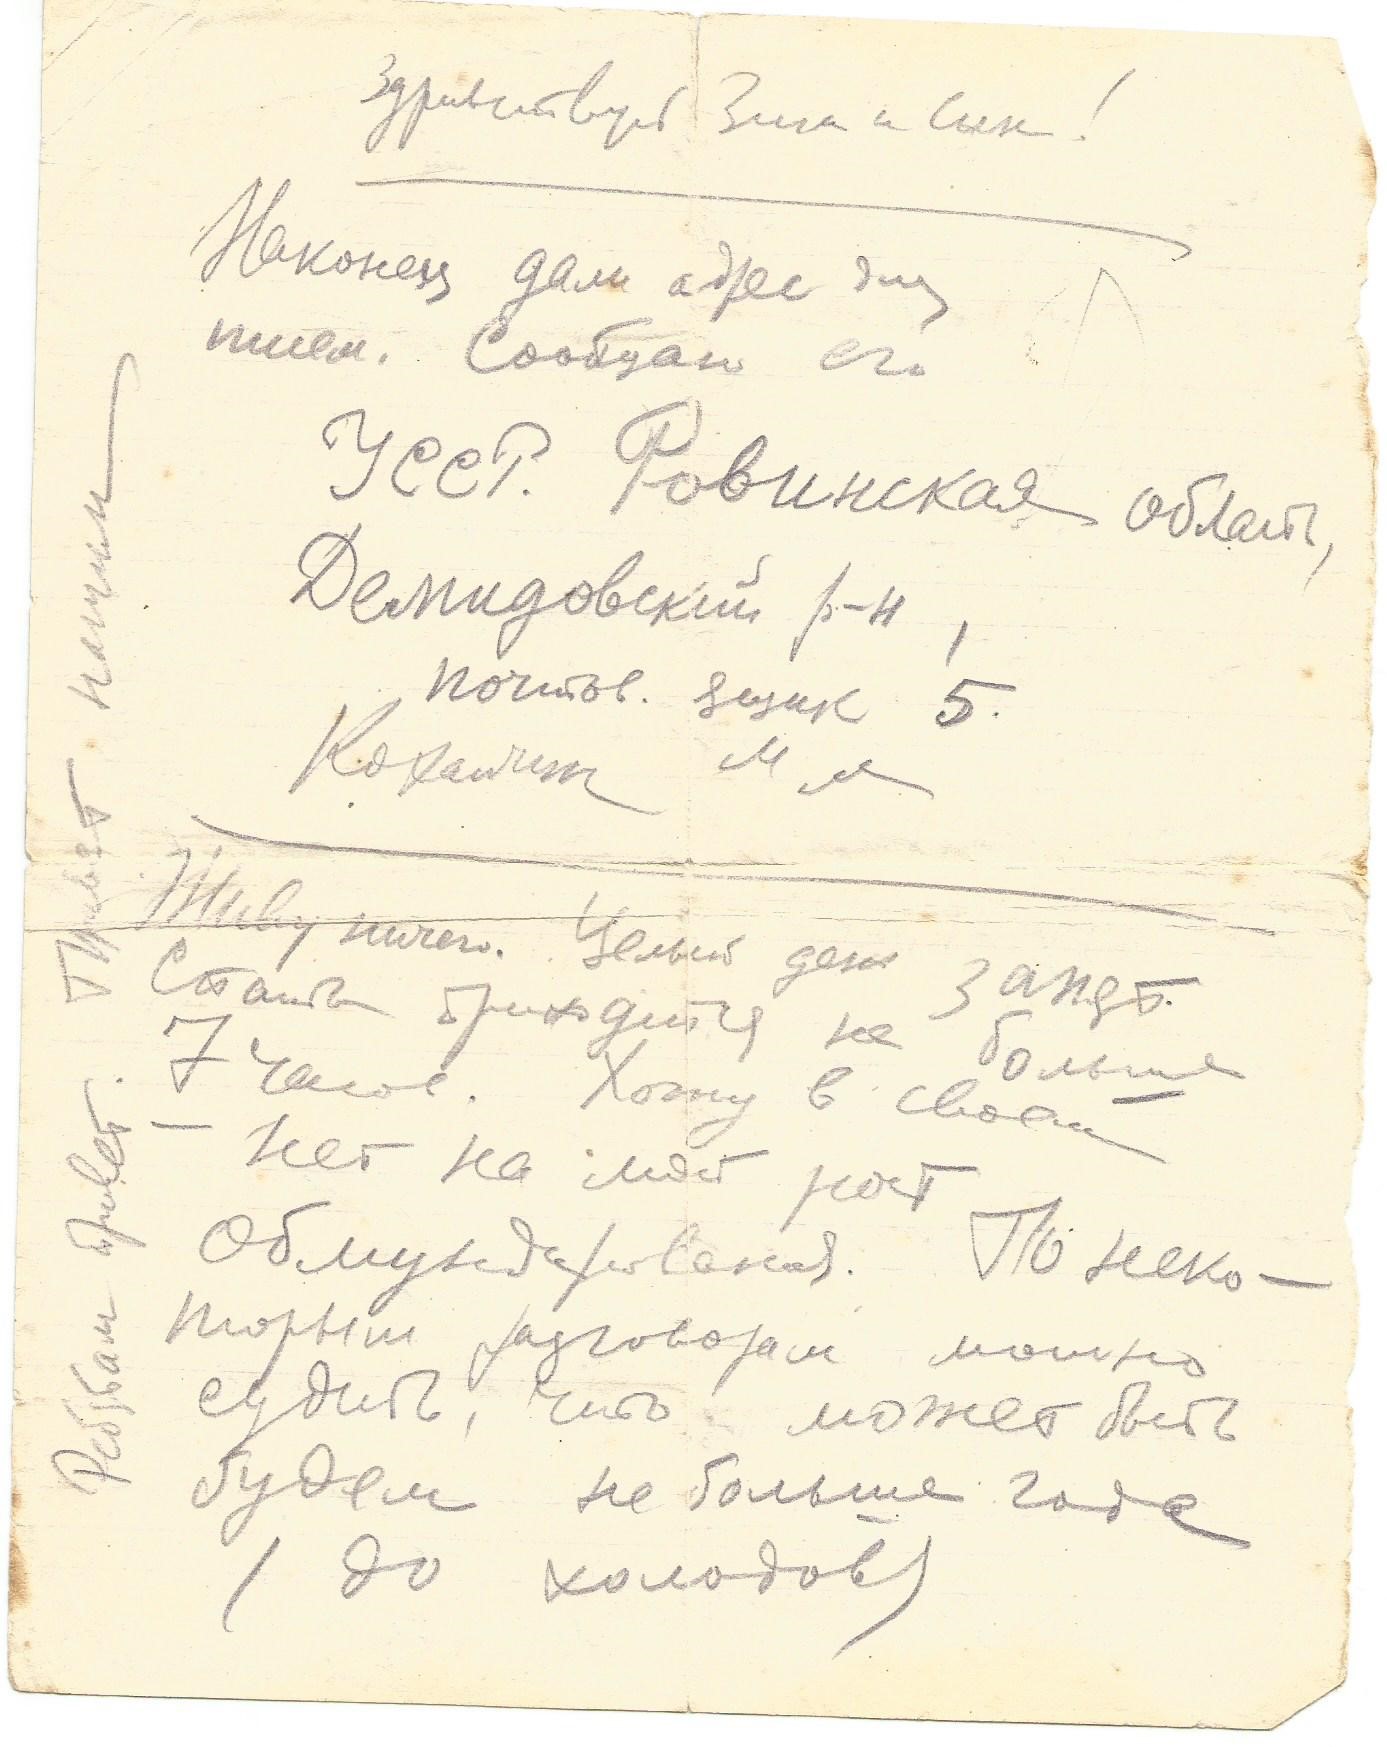 Здравствуй Зина и сын!
Наконец дали адрес для
писем. Сообщаю его
УССР. Ровинская область,
Демидовский р-н,
почтов. ящик 5.
М М
Живу ничего. Целый день занят.
Спать приходится не больше
7 часов. Хожу в своем
– нет на мой рост
обмундирования. По неко-
торым разговорам можно
судить, что может быть
будем не больше года
(до холодов)
Ребятам привет. Привет нашим